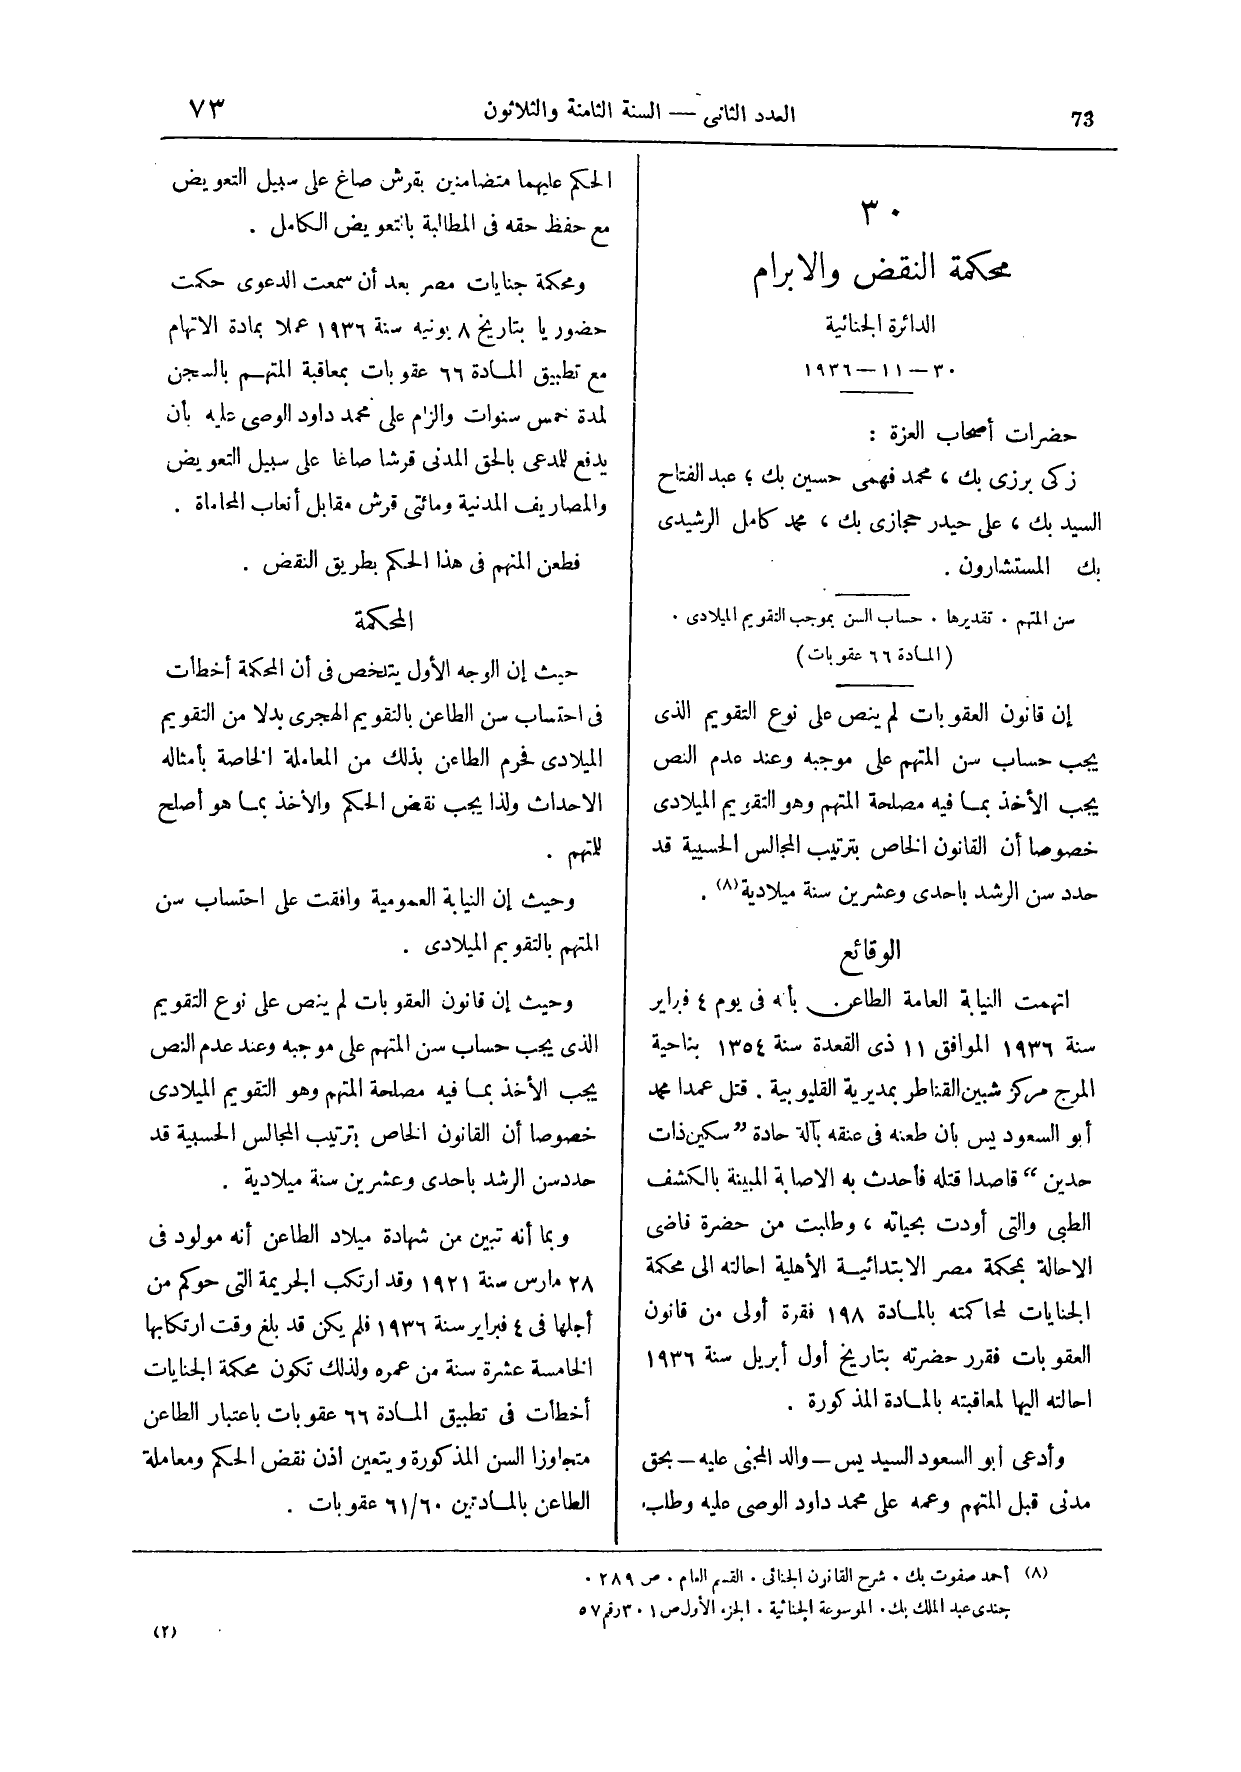 73
العدد الثانى — السنة الثامنة والثلاثون
٧٣
٣٠
محكمة النقض والابرام
الدائرة الجنائية
٣٠ — ١١ — ١٩٣٦
حضرات أصحاب العزة :
زكى برزى بك ، محمد فهمى حسين بك ، عبد الفتاح
السيد بك ، على حيدر حجازى بك ، محمد كامل الرشيدى
بك المستشارون .
سن المتهم . تقديرها . حساب السن بموجب التقويم الميلادى .
( المادة ٦٦ عقوبات )
إن قانون العقوبات لم ينص على نوع التقويم الذى
يجب حساب سن المتهم على موجبه وعند عدم النص
يجب الأخذ بما فيه مصلحة المتهم وهو التقويم الميلادى
خصوصا أن القانون الخاص بترتيب المجالس الحسبية قد
حدد سن الرشد باحدى وعشرين سنة ميلادية(٨) .
الوقائع
اتهمت النيابة العامة الطاعن بأنه فى يوم ٤ فبراير
سنة ١٩٣٦ الموافق ١١ ذى القعدة سنة ١٣٥٤ بناحية
المرج مركز شبين القناطر بمديرية القليوبية . قتل عمدا محمد
أبو السعود يس بان طعنه فى عنقه بآلة حادة ” سكين ذات
حدين “ قاصدا قتله فأحدث به الاصابة المبينة بالكشف
الطبى والتى أودت بحياته ، وطلبت من حضرة قاضى
الاحالة بمحكمة مصر الابتدائية الأهلية احالته الى محكمة
الجنايات لمحاكمته بالمادة ١٩٨ فقرة أولى من قانون
العقوبات فقرر حضرته بتاريخ أول أبريل سنة ١٩٣٦
احالته اليها لمعاقبته بالمادة المذكورة .
وأدعى أبو السعود السيد يس — والد المجنى عليه — بحق
مدنى قبل المتهم وعمه على محمد داود الوصى عليه وطلب
الحكم عليهما متضامنين بقرش صاغ على سبيل التعويض
مع حفظ حقه فى المطالبة بالتعويض الكامل .
ومحكمة جنايات مصر بعد أن سمعت الدعوى حكمت
حضوريا بتاريخ ٨ يونيه سنة ١٩٣٦ عملا بمادة الاتهام
مع تطبيق المادة ٦٦ عقوبات بمعاقبة المتهم بالسجن
لمدة خمس سنوات والزام على محمد داود الوصى عليه بأن
يدفع للمدعى بالحق المدنى قرشا صاغا على سبيل التعويض
والمصاريف المدنية ومائتى قرش مقابل أتعاب المحاماة .
فطعن المتهم فى هذا الحكم بطريق النقض .
المحكمة
حيث إن الوجه الأول يتلخص فى أن المحكمة أخطأت
فى احتساب سن الطاعن بالتقويم الهجرى بدلا من التقويم
الميلادى فحرم الطاعن بذلك من المعاملة الخاصة بأمثاله
الاحداث ولذا يجب نقض الحكم والأخذ بما هو أصلح
للمتهم .
وحيث إن النيابة العمومية وافقت على احتساب سن
المتهم بالتقويم الميلادى .
وحيث إن قانون العقوبات لم ينص على نوع التقويم
الذى يجب حساب سن المتهم على موجبه وعند عدم النص
يجب الأخذ بما فيه مصلحة المتهم وهو التقويم الميلادى
خصوصا أن القانون الخاص بترتيب المجالس الحسبية قد
حدد سن الرشد باحدى وعشرين سنة ميلادية .
وبما أنه تبين من شهادة ميلاد الطاعن أنه مولود فى
٢٨ مارس سنة ١٩٢١ وقد ارتكب الجريمة التى حوكم من
أجلها فى ٤ فبراير سنة ١٩٣٦ فلم يكن قد بلغ وقت ارتكابها
الخامسة عشرة سنة من عمره ولذلك تكون محكمة الجنايات
أخطأت فى تطبيق المادة ٦٦ عقوبات باعتبار الطاعن
متجاوزا السن المذكورة ويتعين اذن نقض الحكم ومعاملة
الطاعن بالمادتين ٦١/٦٠ عقوبات .
(٨) أحمد صفوت بك . شرح القانون الجنائى . القسم العام . ص ٢٨٩ .
جندى عبد الملك بك . الموسوعة الجنائية . الجزء الأول ص ٣٠١ رقم ٥٧
(٢)